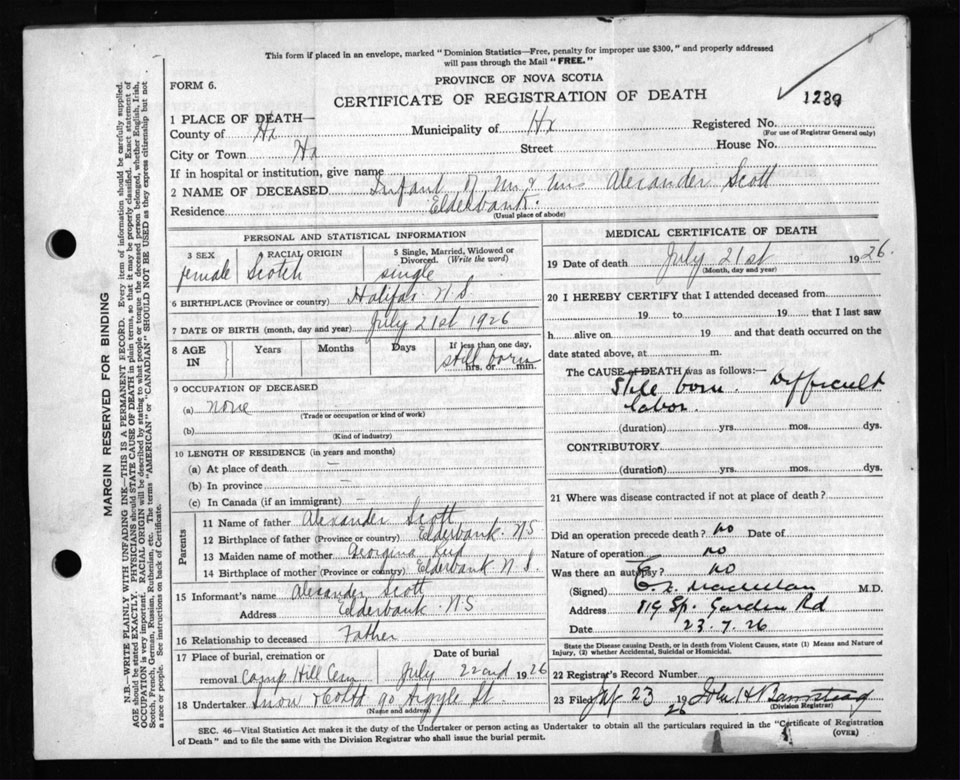 This form if placed in an envelope, marked "Dominion Statistics—Free, penalty for improper use $300," and properly addressed
will pass through the Mail "FREE."
FORM 6.
PROVINCE OF NOVA SCOTIA
CERTIFICATE OF REGISTRATION OF DEATH
1239
1 PLACE OF DEATH—
County of Hx Municipality of Hx Registered No.
(For use of Registrar General only)
City or Town Hx Street House No.
If in hospital or institution, give name
2 NAME OF DECEASED Infant of Mr & Mrs Alexander Scott
Residence Elderbank.
(Usual place of abode)
PERSONAL AND STATISTICAL INFORMATION
3 SEX RACIAL ORIGIN 5 Single, Married, Widowed or Divorced. (Write the word)
female Scotch single
6 BIRTHPLACE (Province or country) Halifax N.S
7 DATE OF BIRTH (month, day and year) July 21st 1926
8 AGE IN Years Months Days If less than one day, hrs. or min.
still born
9 OCCUPATION OF DECEASED
(a) none
(Trade or occupation or kind of work)
(b)
(Kind of industry)
10 LENGTH OF RESIDENCE (in years and months)
(a) At place of death —
(b) In province —
(c) In Canada (if an immigrant) —
Parents
11 Name of father Alexander Scott
12 Birthplace of father (Province or country) Elderbank. NS
13 Maiden name of mother Georgina
14 Birthplace of mother (Province or country) Elderbank N.S.
15 Informant's name Alexander Scott
Address Elderbank. NS
16 Relationship to deceased Father
17 Place of burial, cremation or removal Camp Hill Cem
Date of burial July 22nd 1926
18 Undertaker Snow & Co Ltd 90 Argyle St
(Name and address)
MEDICAL CERTIFICATE OF DEATH
19 Date of death July 21st 1926.
(Month, day and year)
20 I HEREBY CERTIFY that I attended deceased from
19 to 19 that I last saw
h alive on 19 and that death occurred on the
date stated above, at m.
The CAUSE of DEATH was as follows:—
Still born. Difficult
labor.
(duration) yrs. mos. dys.
CONTRIBUTORY
(duration) yrs. mos. dys.
21 Where was disease contracted if not at place of death?
Did an operation precede death? no Date of
Nature of operation no
Was there an autopsy? no
(Signed) M.D.
Address 119 Sp. Garden Rd
Date 23.7.26
State the Disease causing Death, or in death from Violent Causes, state (1) Means and Nature of
Injury, (2) whether Accidental, Suicidal or Homicidal.
22 Registrar's Record Number
23 Filed 23 1926 John H Barnstead
(Division Registrar)
SEC. 46—Vital Statistics Act makes it the duty of the Undertaker or person acting as Undertaker to obtain all the particulars required in the "Certificate of Registration
of Death" and to file the same with the Division Registrar who shall issue the burial permit.
(OVER)
MARGIN RESERVED FOR BINDING
N.B.—WRITE PLAINLY WITH UNFADING INK—THIS IS A PERMANENT RECORD. Every item of information should be carefully supplied.
AGE should be stated EXACTLY. PHYSICIANS should STATE CAUSE OF DEATH in plain terms, so that it may be properly classified. Exact statement of
OCCUPATION is very important. RACIAL ORIGIN will be described by stating to what people or tongue the deceased person belonged, whether English, Irish,
Scotch, French, German, Russian, Ruthenian, etc. The terms "AMERICAN" or "CANADIAN" SHOULD NOT BE USED as they express citizenship but not
a race or people. See instructions on back of Certificate.